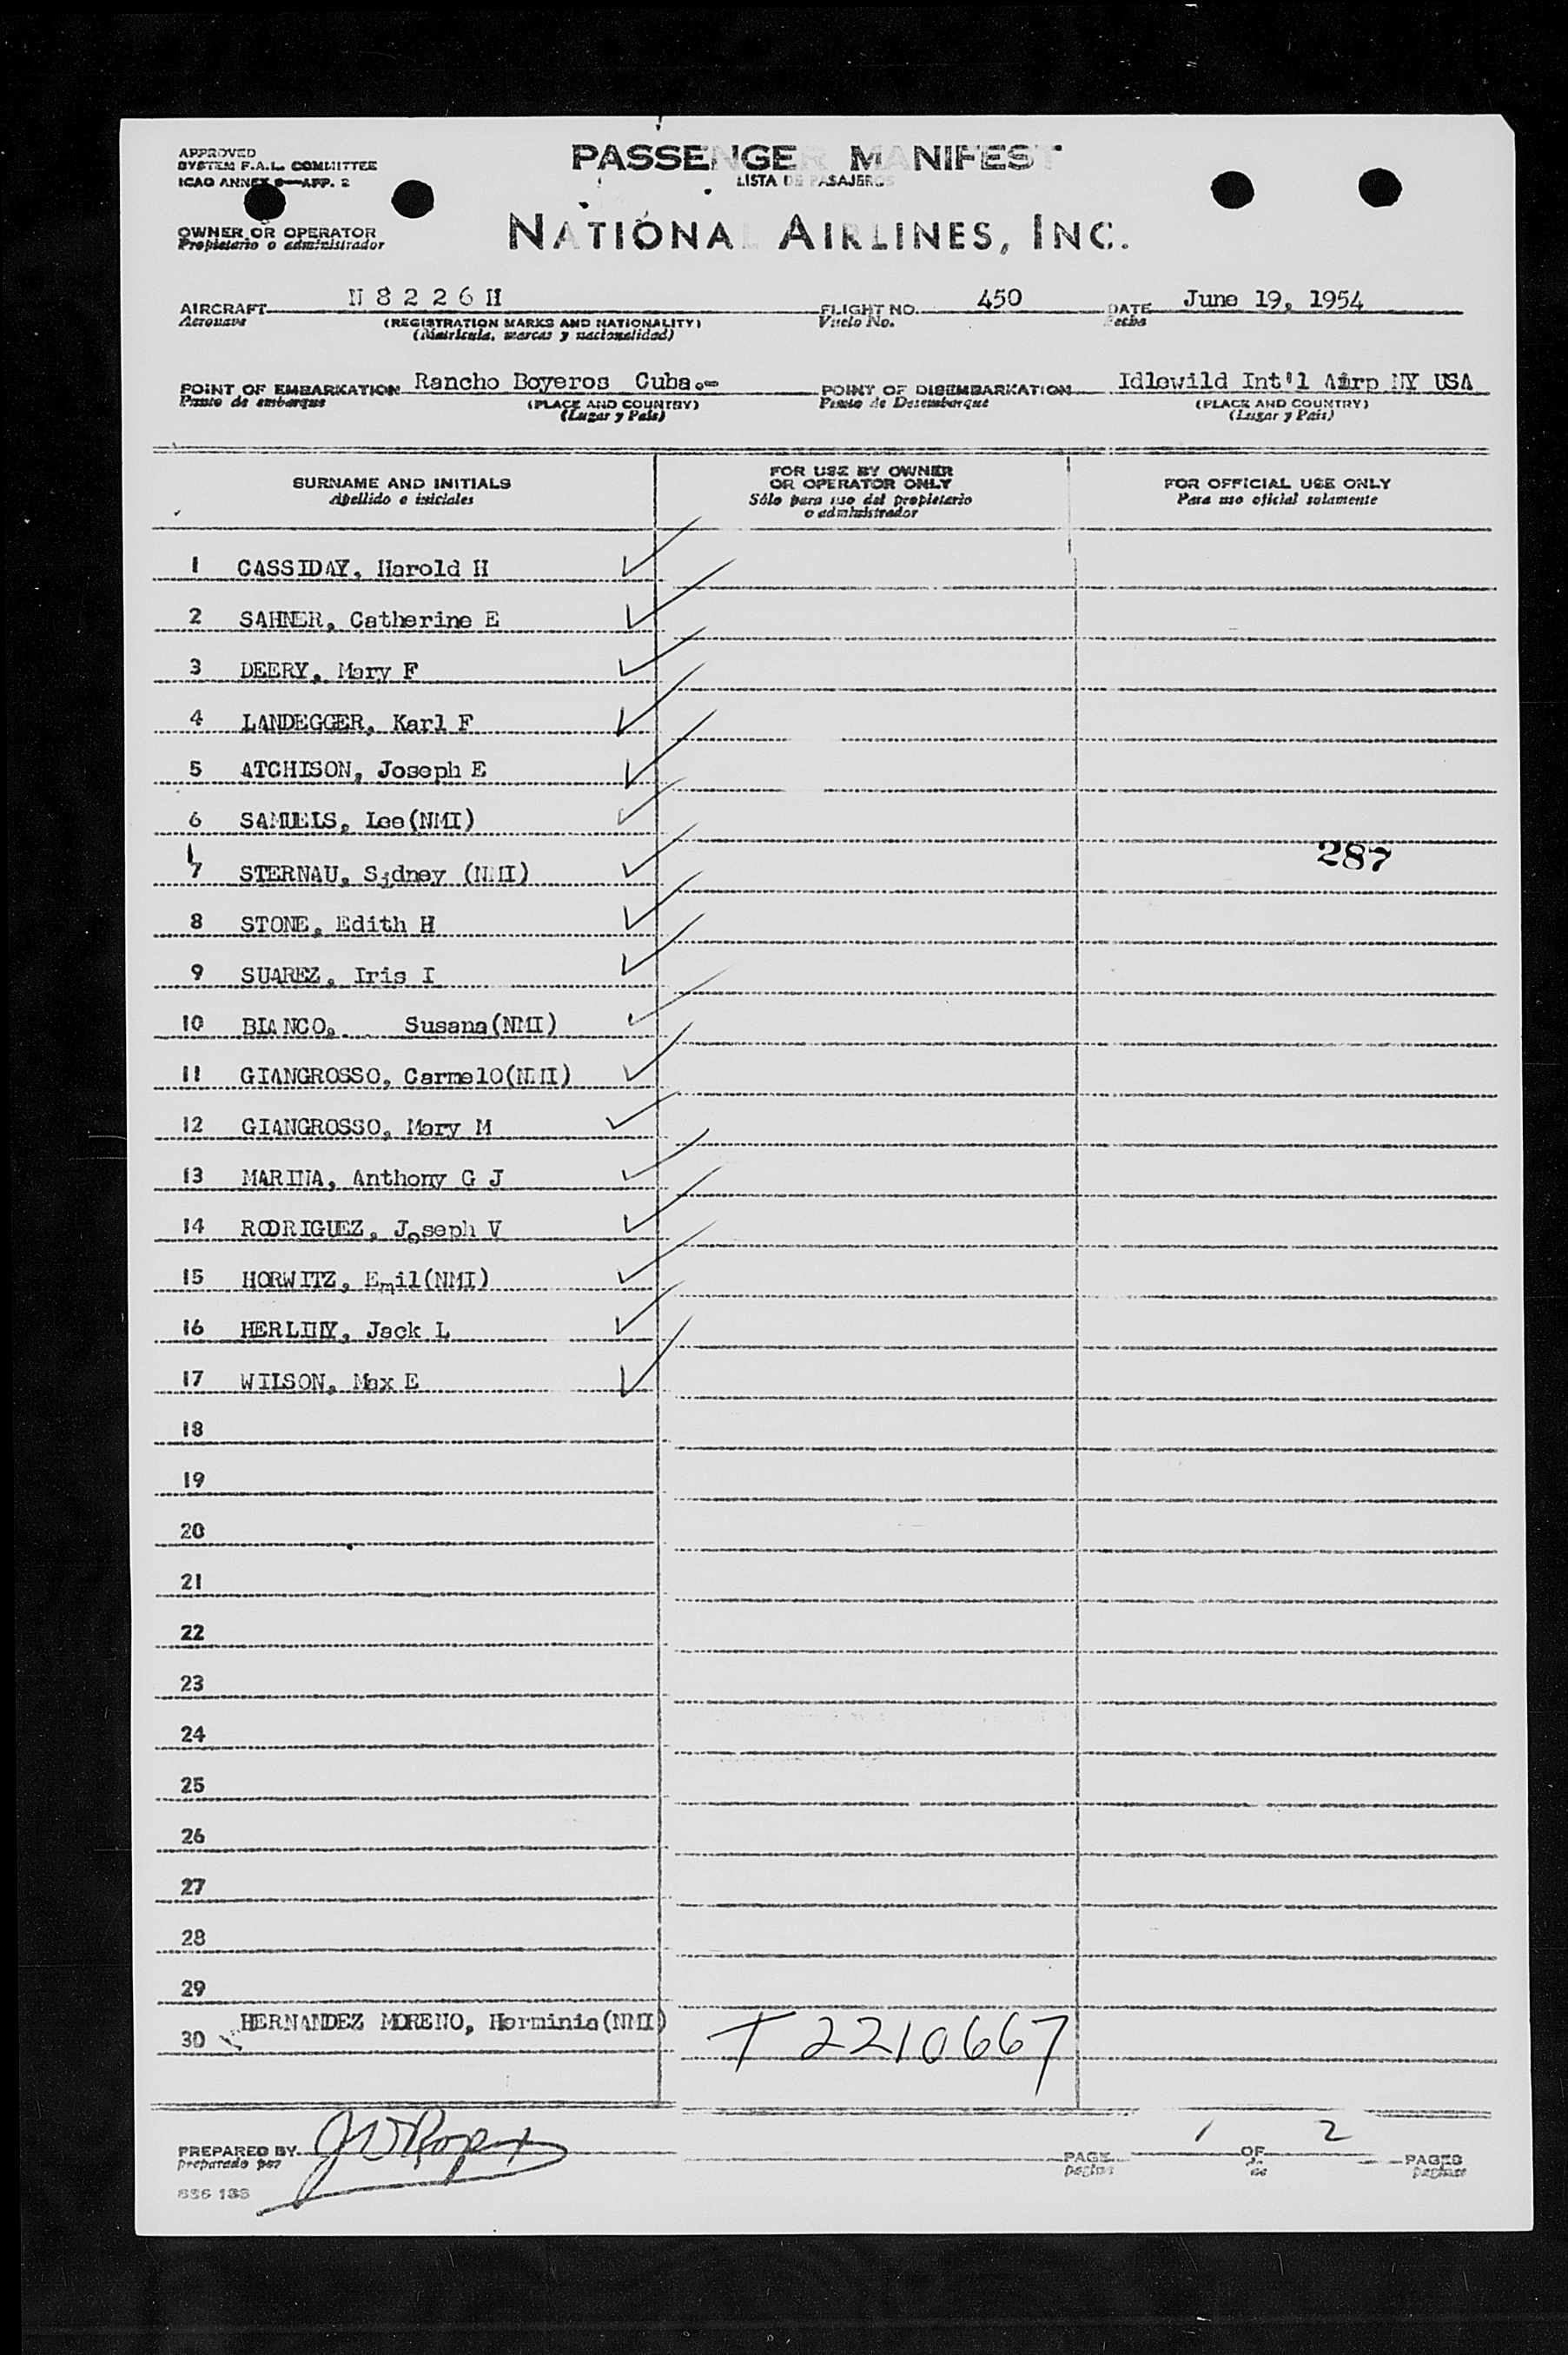 APPROVED
SYSTEM F.A.L. COMMITTEE
ICAO ANNEX 9—APP. 2
PASSENGER MANIFEST
LISTA DE PASAJEROS
OWNER OR OPERATOR
Propietario o administrador
NATIONAL AIRLINES, INC.
AIRCRAFT N 8 2 2 6 H FLIGHT NO. 450 DATE June 19, 1954
Aeronave (REGISTRATION MARKS AND NATIONALITY) Vuelo No. Fecha
(Matricula, marcas y nacionalidad)
POINT OF EMBARKATION Rancho Boyeros Cuba.- POINT OF DISEMBARKATION Idlewild Int'l Airp NY USA
Punto de embarque (PLACE AND COUNTRY) Punto de Desembarque (PLACE AND COUNTRY)
(Lugar y País) (Lugar y País)
SURNAME AND INITIALS
Apellido e iniciales
FOR USE BY OWNER
OR OPERATOR ONLY
Sólo para uso del propietario
o administrador
FOR OFFICIAL USE ONLY
Para uso oficial solamente
1 CASSIDAY, Harold H
2 SAHNER, Catherine E
3 DEERY, Mary F
4 LANDEGGER, Karl F
5 ATCHISON, Joseph E
6 SAMUELS, Lee(NMI)
287
7 STERNAU, Sidney (NMI)
8 STONE, Edith H
9 SUAREZ, Iris I
10 BIANCO, Susana(NMI)
11 GIANGROSSO, Carmelo(NMI)
12 GIANGROSSO, Mary M
13 MARINA, Anthony G J
14 RODRIGUEZ, Joseph V
15 HORWITZ, Emil(NMI)
16 HERLIHY, Jack L
17 WILSON, Max E
18
19
20
21
22
23
24
25
26
27
28
29
HERNANDEZ MORENO, Herminia(NMI)
30 T 2210667
PREPARED BY PAGE 1 OF 2 PAGES
preparado por pagina de paginas